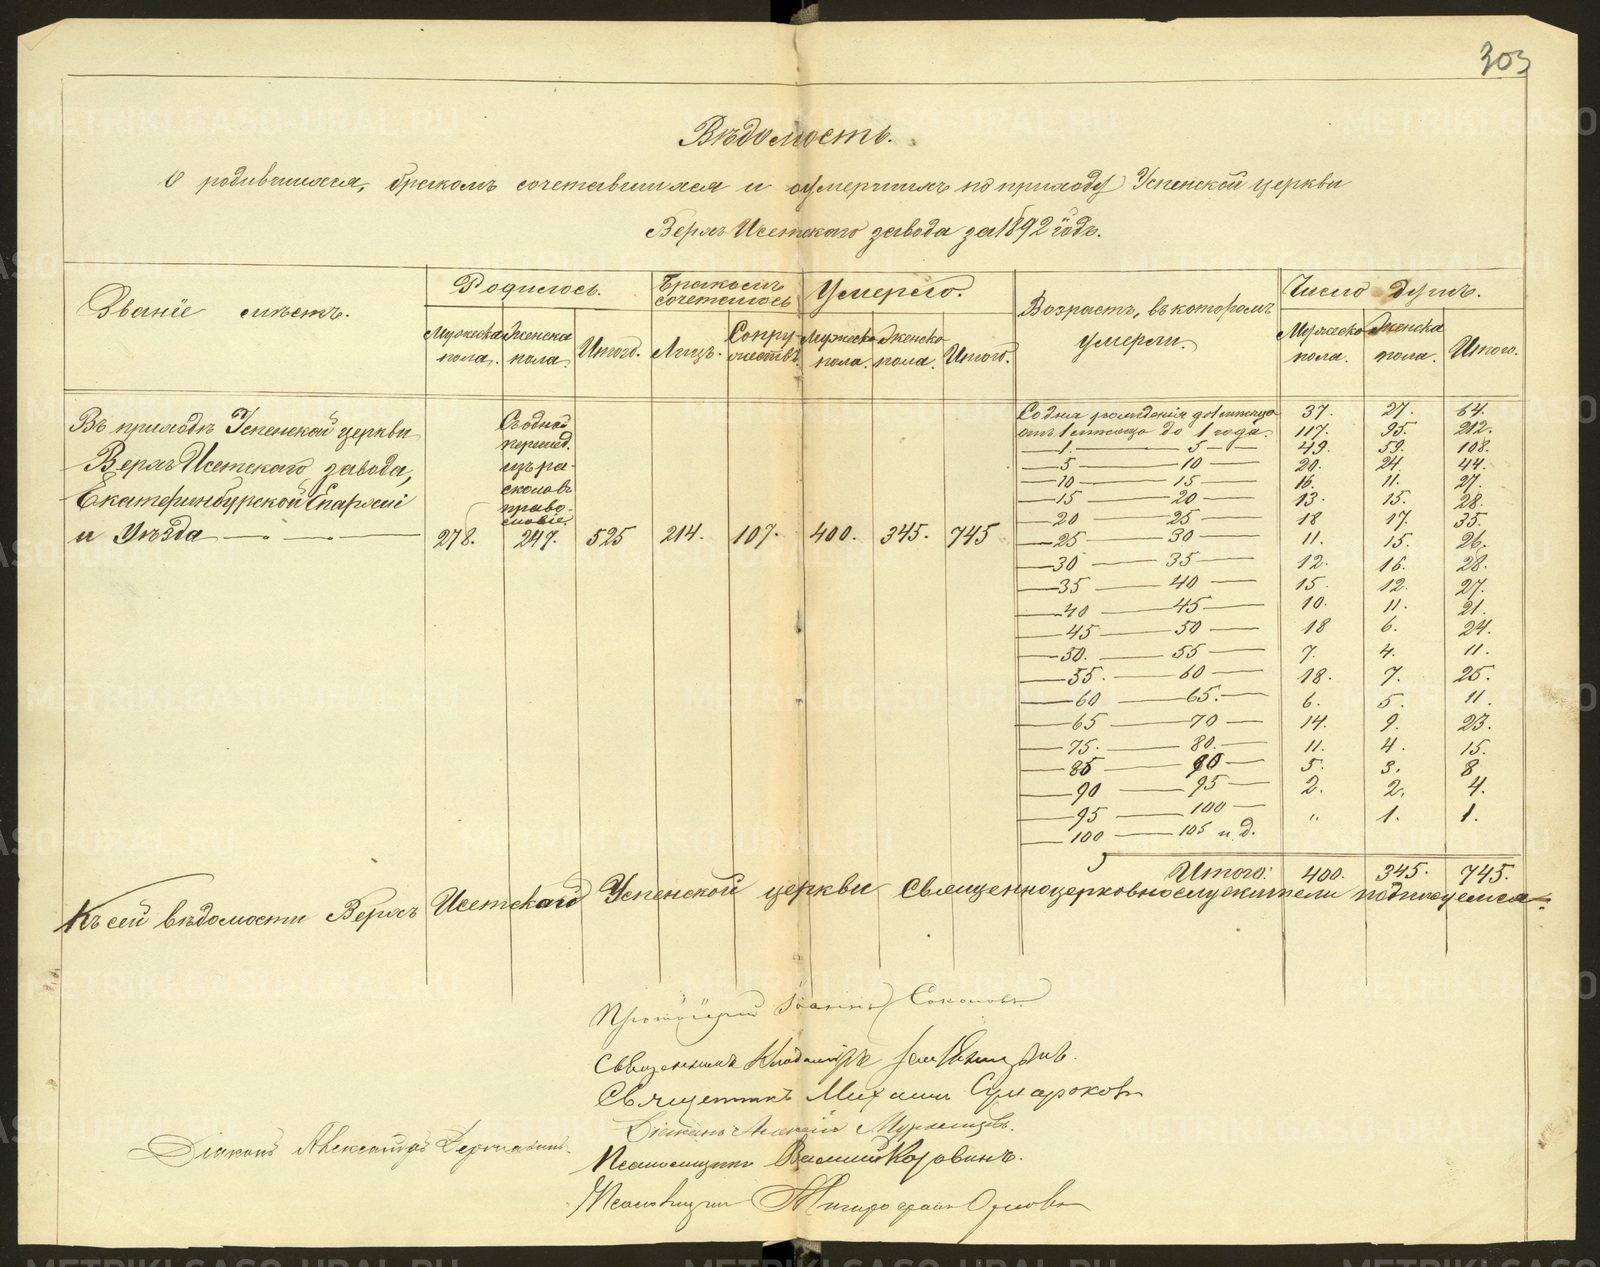 303
Вѣдомость.
О родившихся, бракомъ сочетавшихся и умершихъ по приходу Успенской церкви
Верхъ Исетскаго завода за 1892 годъ.
Званіе мѣстъ. Родилось. Бракомъ сочеталось Умерло. Возрастъ, въ которомъ умерли. Число душъ.
Мужеска пола. Женска пола. Итого. Лицъ. Супружествъ. Мужеска пола. Женска пола. Итого. Мужеска пола. Женска пола. Итого.
Въ приходѣ Успенской церкви
Верхъ Исетскаго завода,
Екатеринбургской Епархіи
и Уѣзда
Съ одной
перешед.
изъ ра-
скола въ
право-
славіе.
278. 247. 525 214. 107. 400. 345. 745
Со дня рожденія до 1 мѣсяца 37. 27. 64.
отъ 1 мѣсяца до 1 года. 117. 95. 212.
— 1. — 5 — 49. 59. 108.
— 5 — 10 — 20. 24. 44.
— 10 — 15 — 16. 11. 27.
— 15 — 20 — 13. 15. 28.
— 20 — 25 — 18 17. 35.
— 25 — 30 — 11. 15. 26.
— 30 — 35 — 12. 16. 28.
— 35 — 40 — 15. 12. 27.
— 40 — 45 — 10. 11. 21.
— 45 — 50 — 18 6. 24.
— 50. — 55 — 7. 4. 11.
— 55. — 60 — 18. 7. 25.
— 60 — 65. — 6. 5. 11.
— 65 — 70 — 14. 9. 23.
— 75. — 80. — 11. 4. 15.
— 85 — 90 — 5. 3. 8
— 90 — 95 — 2. 2. 4.
— 95 — 100 — " 1. 1.
— 100 — 105 и д.
Итого: 400. 345. 745.
Къ сей вѣдомости Верхъ Исетскаго Успенской церкви священноцерковнослужители подписуемся:
Протоіерей Іоаннъ Соколовъ
Священникъ Владиміръ
Священникъ Михаилъ Сумароковъ
Діаконъ Алексій
Діаконъ Александръ
Псаломщикъ Василій Коровинъ.
Псаломщикъ Орловъ
METRIKI.GASO-URAL.RU